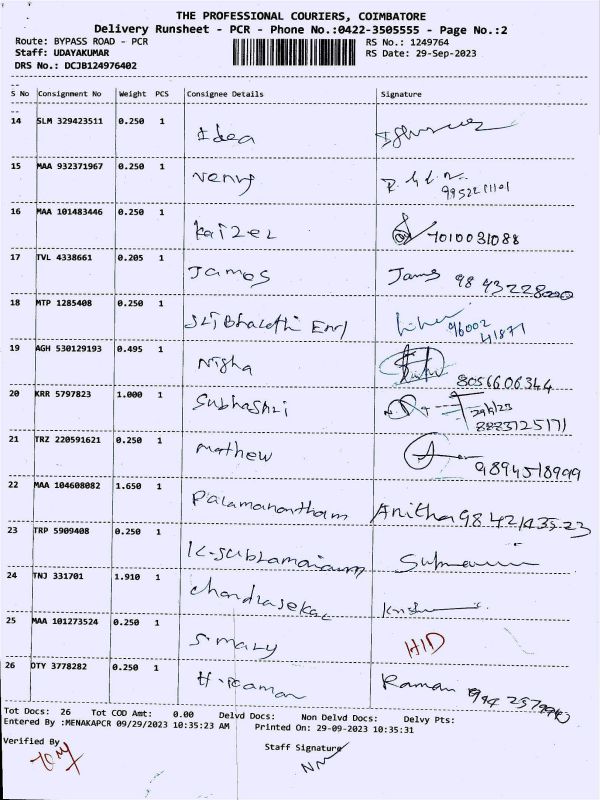 THE PROFESSIONAL COURIERS, COIMBATORE
Delivery Runsheet - PCR - Phone No.:0422-3505555 - Page No.:2
Route: BYPASS ROAD - PCR
RS No.: 1249764
Staff: UDAYAKUMAR
RS Date: 29-Sep-2023
DRS No.: DCJB124976402
S No Consignment No Weight PCS Consignee Details Signature
14 SLM 329423511 0.250 1 Idea
15 MAA 932371967 0.250 1
16 MAA 101483446 0.250 1 Kaizer 7010031088
17 TVL 4338661 0.205 1 James James 98 43228000
18 MTP 1285408 0.250 1 96002
41871
19 AGH 530129193 0.495 1 Nisha 8056606344
20 KRR 5797823 1.000 1 Subhashri
8883725171
21 TRZ 220591621 0.250 1 Mathew 9894518999
22 MAA 104608082 1.650 1 Anitha 98 421435 23
23 TRP 5909408 0.250 1
24 TNJ 331701 1.910 1 Chandrasekar
25 MAA 101273524 0.250 1 S. Mary HID
26 OTY 3778282 0.250 1 H. Raaman Raman
Tot Docs: 26 Tot COD Amt: 0.00 Delvd Docs: Non Delvd Docs: Delvy Pts:
Entered By :MENAKAPCR 09/29/2023 10:35:23 AM Printed On: 29-09-2023 10:35:31
Verified By
Staff Signature